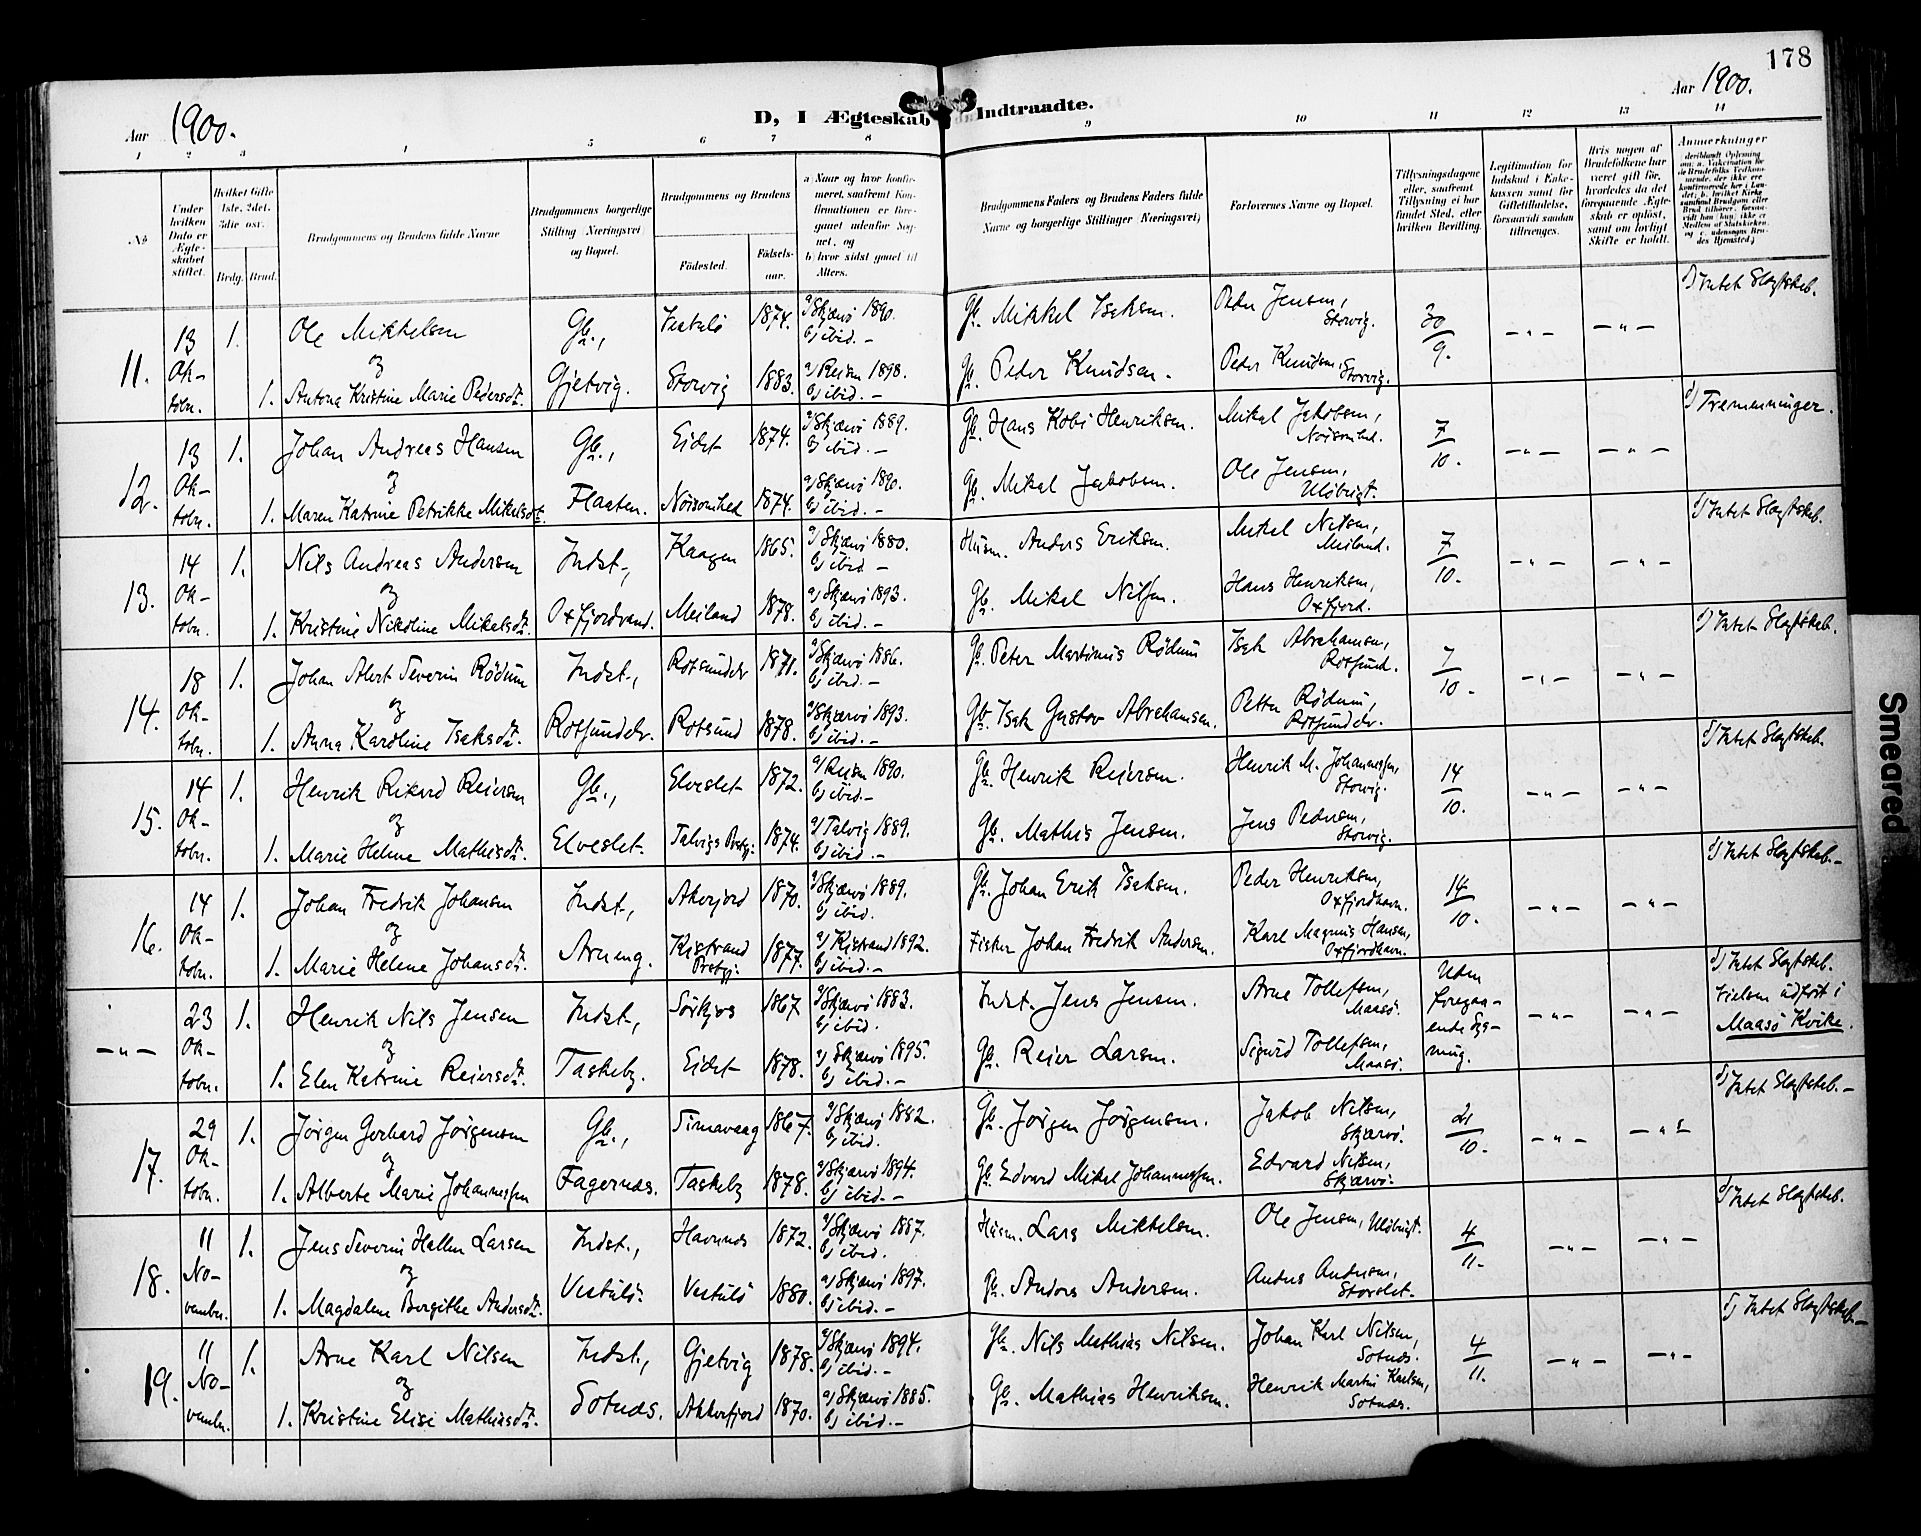 178
Aar 1900.
D, I Ægteskab Indtraadte.
Aar 1900.
1 2 3 4 5 6 7 8 9 10 11 12 13 14
No
Under hvilken Dato er Ægteskabet stiftet.
Hvilket Gifte 1ste, 2det, 3die osv.
Brdg. Brud.
Brudgommens og Brudens fulde Navne
Brudgommens borgerlige Stilling Næringsvei og Bopæl.
Brudgommens og Brudens
Fødested.
Fødselsaar.
a) Naar og hvor konfirmeret, saafremt Konfirmationen er foregaaet udenfor Sognet, og
b) hvor sidst gaaet til Alters.
Brudgommens Faders og Brudens Faders fulde Navne og borgerlige Stillinger Næringsvei)
Forlovernes Navne og Bopæl.
Tillysningsdagene eller, saafremt Tillysning ei har fundet Sted, efter hvilken Bevilling.
Legitimation for Indskud i Enkekassen samt for Giftetilladelse, forsaavidt saadan tiltrænges.
Hvis nogen af Brudefolkene har været gift før, hvorledes da det foregaaende Ægteskab er opløst, samt om lovligt Skifte er holdt.
Anmerkninger
11. 13 Oktobr. 1. Ole Mikkelsen Gb., Vestulö 1874. a) Skjærvö 1890. b) ibid. – Gb. Mikkel Isaksen. Peder Jensen, Storvig. 30/9. – " – – " – d) Intet Slegtskab.
og
1. Antona Kristine Marie Pedersdtr. Gjetvig. Storvig 1883. a) Reisen 1898. b) ibid. – Gb. Peder Knudsen. Peder Knudsen, Storvig.
12. 13 Oktobr. 1. Johan Andreas Hansen Gb., Eidet 1874. a) Skjærvö 1889. b) ibid. – Gb. Hans Kobi Henriksen. Mikal Jakobsen, Noisomhed. 7/10. – " – – " – d) Tremenninger.
og
1. Maren Katrine Petrikke Mikalsdtr. Flaaten. Noisomhed 1874. a) Skjærvö 1890. b) ibid. – Gb. Mikal Jakobsen. Ole Jensen, Ulöbugt.
13. 14 Oktobr. 1. Nils Andreas Andersen Indst., Kaagen 1865. a) Skjærvö 1880. b) ibid. – Husm. Anders Eriksen. Mikal Nilsen, Meiland. 7/10. – " – – " – d) Intet Slegtskab.
og
1. Kristine Nikoline Mikalsdtr. Oxfjordvand. Meiland 1878. a) Skjærvö 1893. b) ibid. – Gb. Mikal Nilsen. Hans Henriksen, Oxfjord.
14. 18 Oktobr. 1. Johan Alert Severin Rödum Indst., Rotsundelv 1871. a) Skjærvö 1886. b) ibid. – Gb. Peter Martinus Rödum Isak Abrahamsen, Rotsund. 7/10. – " – – " – d) Intet Slegtskab.
og
1. Anna Karoline Isaksdtr. Rotsundelv. Rotsund 1878. a) Skjærvö 1893. b) ibid. – Gb. Isak Gustav Abrahamsen. Petter Rödum, Rotsundelv.
15. 14 Oktobr. 1. Henrik Rikard Reiersen Gb., Elveslet 1872. a) Reisen 1890. b) ibid. – Gb. Henrik Reiersen. Henrik M. Johannessen, Storvig. 14/10. – " – – " – d) Intet Slegtskab.
og
1. Marie Helene Mathisdtr. Elveslet. Talvigs Prstgj. 1874. a) Talvig 1889. b) ibid. – Gb. Mathis Jensen. Jens Pedersen, Storvig.
16. 14 Oktobr. 1. Johan Fredrik Johansen Indst., Akefjord 1870. a) Skjærvö 1889. b) ibid. Gb. Johan Erik Isaksen. Peder Henriksen, Oxfjordhavn. 14/10. – " – – " – d) Intet Slegtskab. –
og
1. Marie Helene Johansdtr. Arneng. Kistrand Prstgj. 1877. a) Kistrand 1892. b) ibid. – Fisker Johan Fredrik Andersen. Karl Magnus Hansen, Oxfjordhavn.
– " – 23 Oktobr. 1. Henrik Nils Jensen Indst., Sörkjos 1867 a) Skjærvö 1883. b) ibid. Indst. Jens Jensen. Arne Tollefsen, Maasö. Uden foregaaende Lysning. – " – – " – d) Intet Slegtskab. Vielsen udført i Maasö Kirke.
og
1. Elen Katrine Reiersdtr. Taskeby. Eidet 1878. a) Skjærvö 1895. b) ibid. – Gb. Reier Larsen. Sigurd Tollefsen, Maasö.
17. 29 Oktobr. 1. Jørgen Gerhard Jørgensen Gb., Simavaag 1867. a) Skjærvö 1882. b) ibid. Gb. Jørgen Jørgensen. Jakob Nilsen, Skjærvö. 21/10. – " – – " – d) Intet Slegtskab. –
og
1. Alberte Marie Johannessen Fagernæs. Taskeby 1878. a) Skjærvö 1894. b) ibid. – Gb. Edvard Mikal Johannessen. Edvard Nilsen, Skjærvö.
18. 11 November. 1. Jens Severin Hallen Larsen Indst., Havnnæs 1872. a) Skjærvö 1887. b) ibid. Husm. Lars Mikkelsen. Ole Jensen, Ulöbugt. 4/11. – " – – " – d) Intet Slegtskab.
og
1. Magdalene Bergithe Andersdtr. Vestulö. Vestulö 1880. a) Skjærvö 1897. b) ibid. – Gb. Anders Andersen. Anders Andersen, Storslet.
19. 11 November. 1. Arne Karl Nilsen Indst., Gjetvig 1878. a) Skjærvö 1894. b) ibid. – Gb. Nils Mathias Nilsen. Johan Karl Nilsen, Sotnæs. 4/11. – " – – " – d) Intet Slegtskab. –
og
1. Kristine Elise Mathiasdtr. Sotnæs. Akkarfjord 1870. a) Skjærvö 1885. b) ibid. – Gb. Mathias Henriksen. Henrik Martin Karlsen, Sotnæs.
Smeared